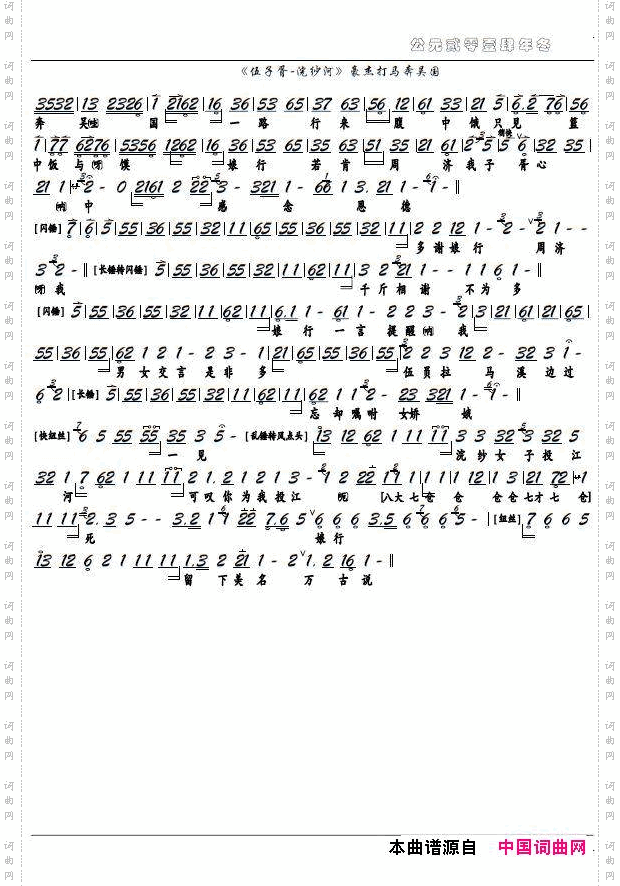 公元贰零壹肆年冬
《伍子胥-浣纱河》豪杰打马奔吴国
3532 | 13 2326 | 1 2162 | 16 36 | 53 65 | 37 63 | 56 12 | 62 33 | 21 5 | 6.2 76 | 56
奔 吴(哇) 国 一 路 行 来 腹 中 饿 只 见 篮
1 | 77 6276 | 5356 1262 | 16 36 | 53 55 | 35 63 | 51 35 | 21 61 | 2 5 | 5 6 | 32 35 |
中 饭 与(呀) 馍 娘 行 若 肯 周 济 我 子 胥 心
21 1 | 2 - 0 2161 2 22 3 - 321 1 - 66 1 3. 21 1 - 1 - ‖
(呐) 中 感 念 恩 德
[闪锤] 7 | 6 | 55 | 36 | 55 | 32 | 11 | 65 | 55 | 36 | 55 | 32 | 11 | 2 2 12 1 - 2 - 2 3 21 - -
多 谢 娘 行 周 济
3 2 - ‖ [长锤转闪锤] 5 | 55 | 36 | 55 | 32 | 11 | 62 | 11 | 3 2 21 1 - - 1 1 6 1 - ‖
(呀) 我 千 斤 相 谢 不 为 多
[闪锤] 5 | 55 | 36 | 55 | 32 | 11 | 62 | 11 | 6.1 1 - 61 1 - 2 2 3 - 2 | 3 | 21 | 61 | 21 | 65 |
娘 行 一 言 提 醒(呐) 我
55 | 36 | 55 | 62 1 2 1 - 2 3 - 1 | 21 | 65 | 55 | 36 | 55 | 2 2 3 12 2 - 32 3 1 -
男 女 交 言 是 非 多 伍 员 拉 马 溪 边 过
6 2 | [长锤] 5 | 55 | 36 | 55 | 32 | 11 | 62 | 11 | 62 1 1 2 - 23 321 1 - 1 - ‖
忘 却 嘱 咐 女 娇 娥
[快纽丝] 6 5 55 55 35 3 5 - [乱锤转凤点头] 13 12 62 11 11 3 3 32 3 32 5
一 见 浣 纱 女 子 投 江
32 1 7 62 1 11 11 2 1. 2 1 2 1 3 - 2 1 2 22 11 | 11 | 1 | 12 | 1 | 3 21 72 1
河 可 叹 你 为 我 投 江 [八大 七 仓 仓 仓 仓 七才 七 仓]
11 11 2. 3 5 - - 3. 2 1 1 22 7.6 5 6 6 6 3.5 6 6 6 5 - | [纽丝] 7 6 6 5
死 娘 行
13 12 6 2 1 11 11 1.3 2 21 1 - 2 1. 2 16 1 - ‖
留 下 美 名 万 古 说
本曲谱源自 中国词曲网